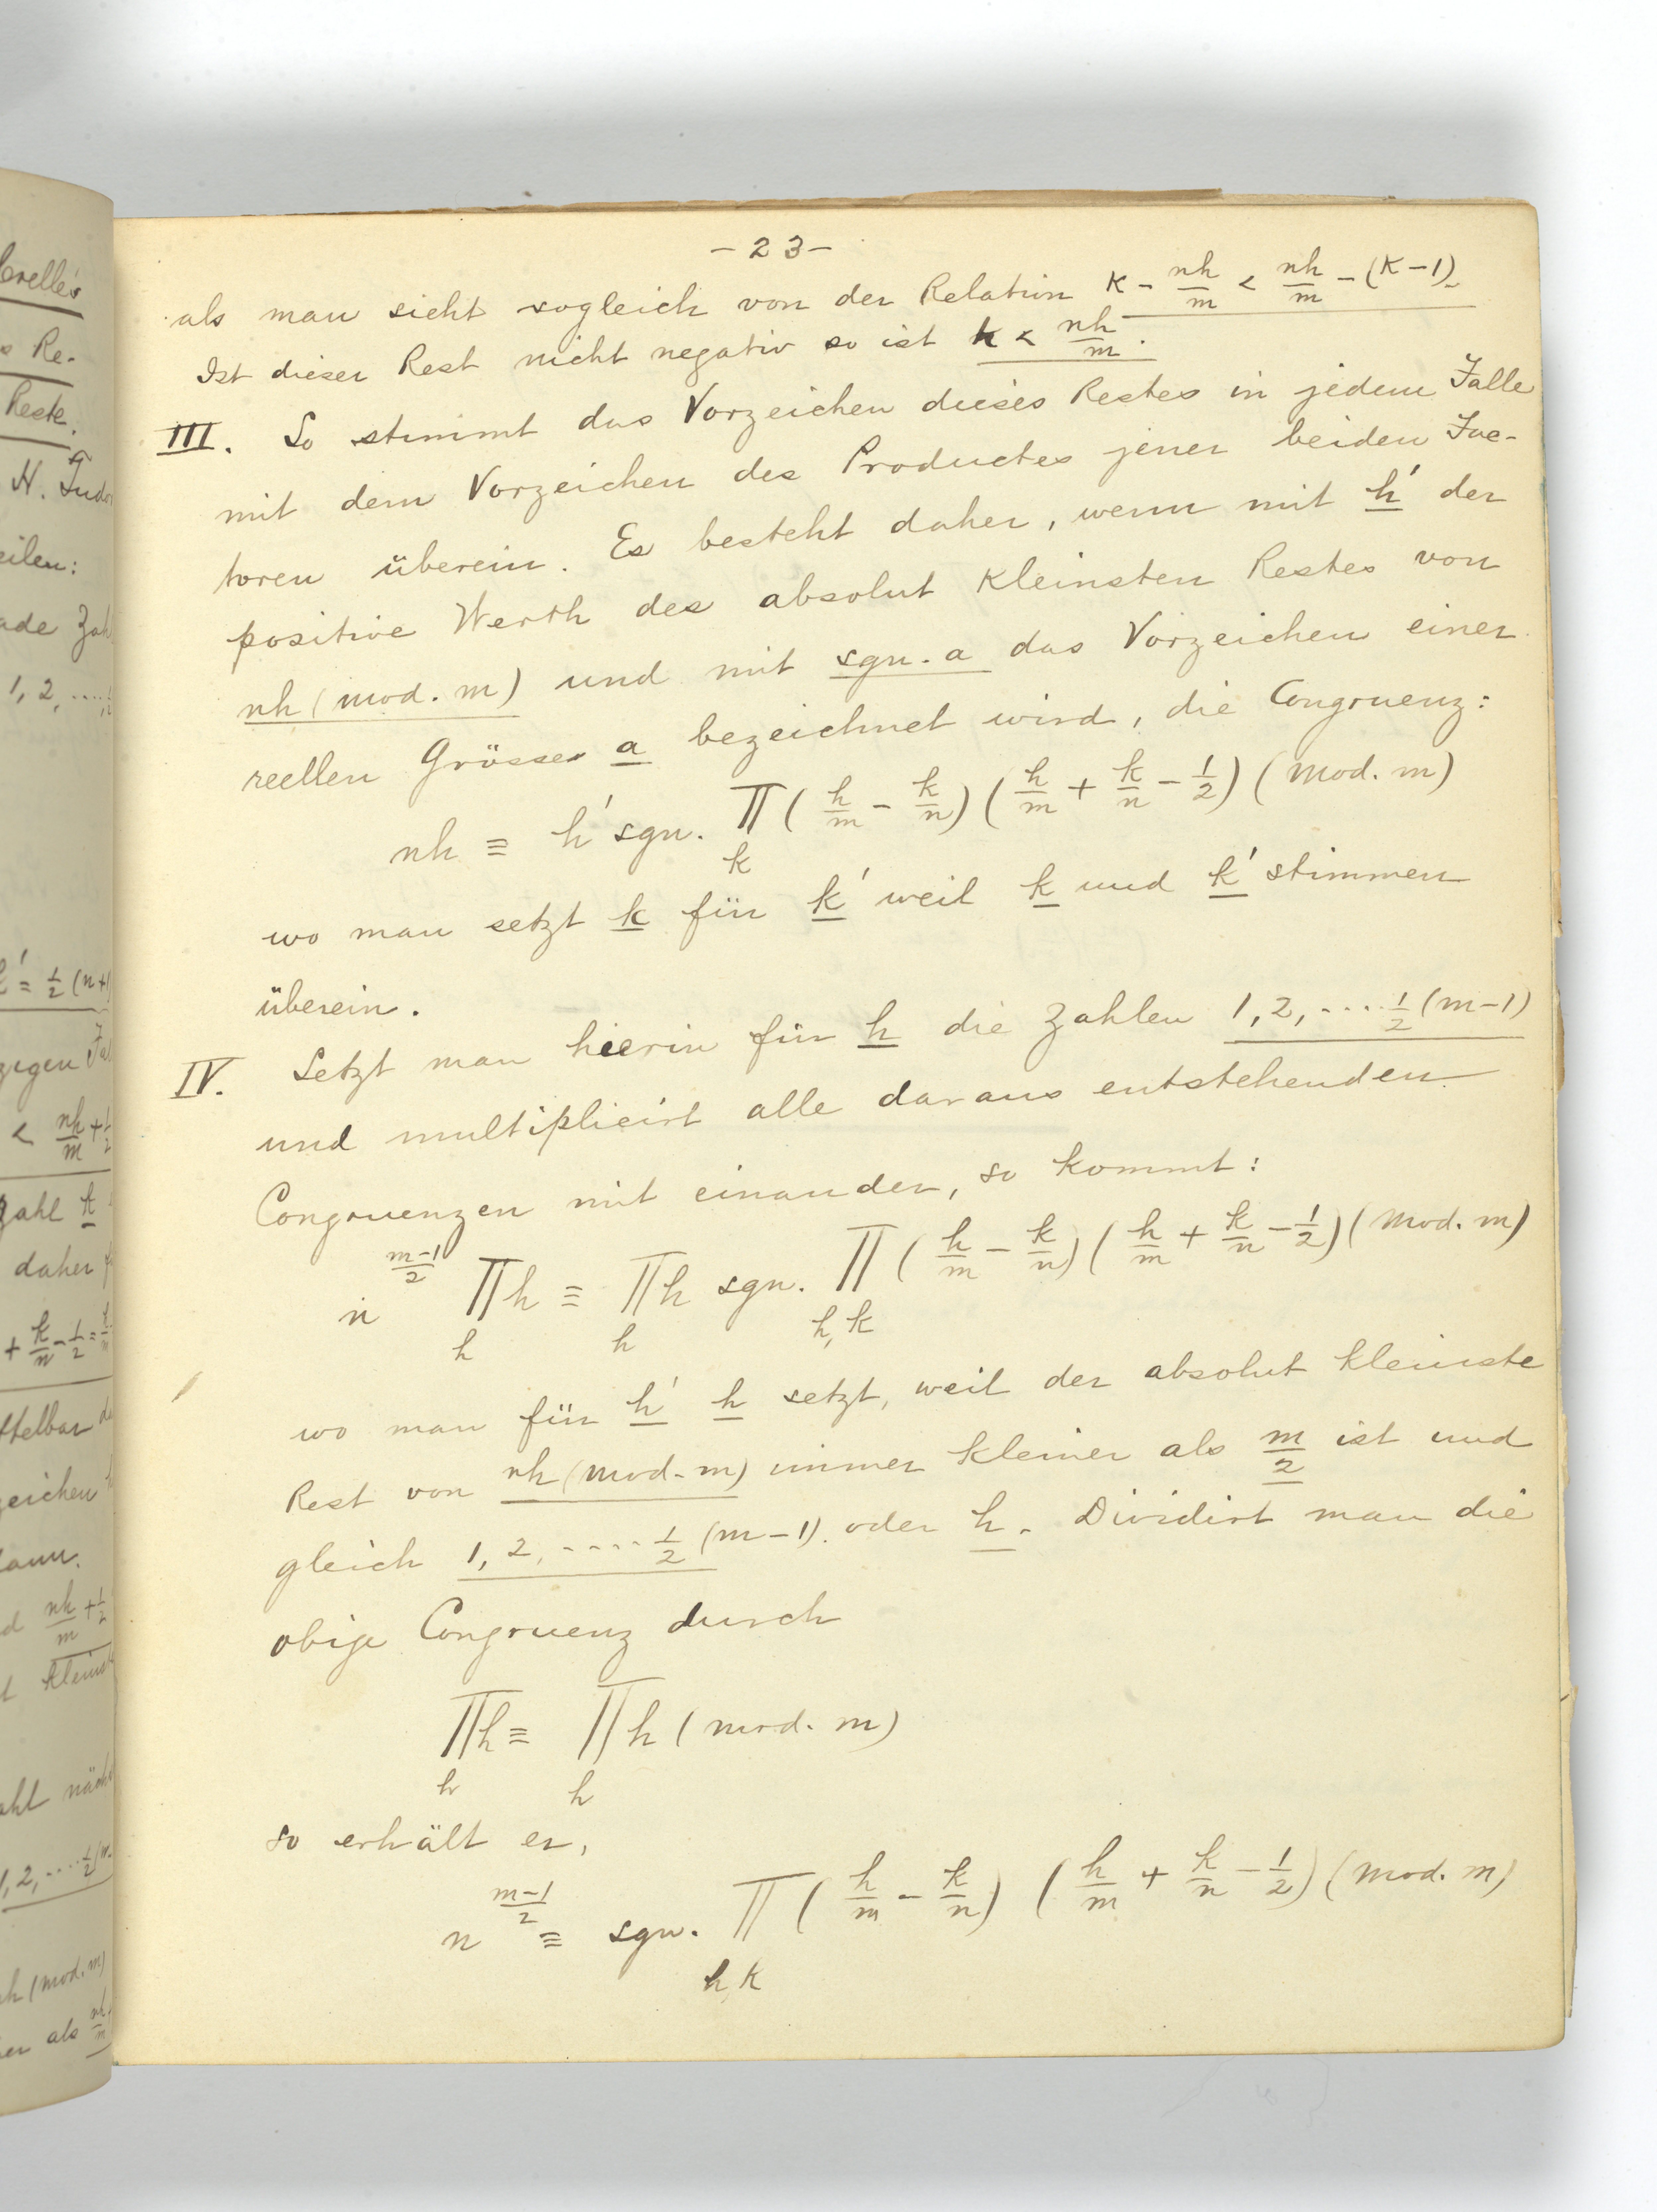 - 23 -
als man sieht sogleich von der Relation k - nh/m < nh/m - (k-1).
Ist dieser Rest nicht negativ so ist k < nh/m.
III. So stimmt das Vorzeichen dieses Restes in jedem Falle
mit dem Vorzeichen des Productes jener beiden Fac-
toren überein. Es besteht daher, wenn mit h' der
positive Werth des absolut kleinsten Restes von
nh (mod. m) und mit sgn. a das Vorzeichen einer
reellen Grösse a bezeichnet wird, die Congruenz:
nh ≡ h' sgn. ∏ (h/m - k/n) (h/m + k/n - 1/2) (mod. m)
k
wo man setzt k für k' weil k und k' stimmen
überein.
IV. Setzt man hierin für h die Zahlen 1, 2, .... 1/2 (m-1)
und multiplicirt alle daraus entstehenden
Congruenzen mit einander, so kommt:
n^((m-1)/2) ∏h ≡ ∏h sgn. ∏ (h/m - k/n) (h/m + k/n - 1/2) (mod. m)
h h h, k
wo man für h' h setzt, weil der absolut kleinste
Rest von nh (mod. m) immer kleiner als m/2 ist und
gleich 1, 2, ..... 1/2 (m-1). oder h. Dividirt man die
obige Congruenz durch
∏h ≡ ∏h (mod. m)
h h
so erhält er,
n^((m-1)/2) ≡ sgn. ∏ (h/m - k/n) (h/m + k/n - 1/2) (mod. m)
h, k